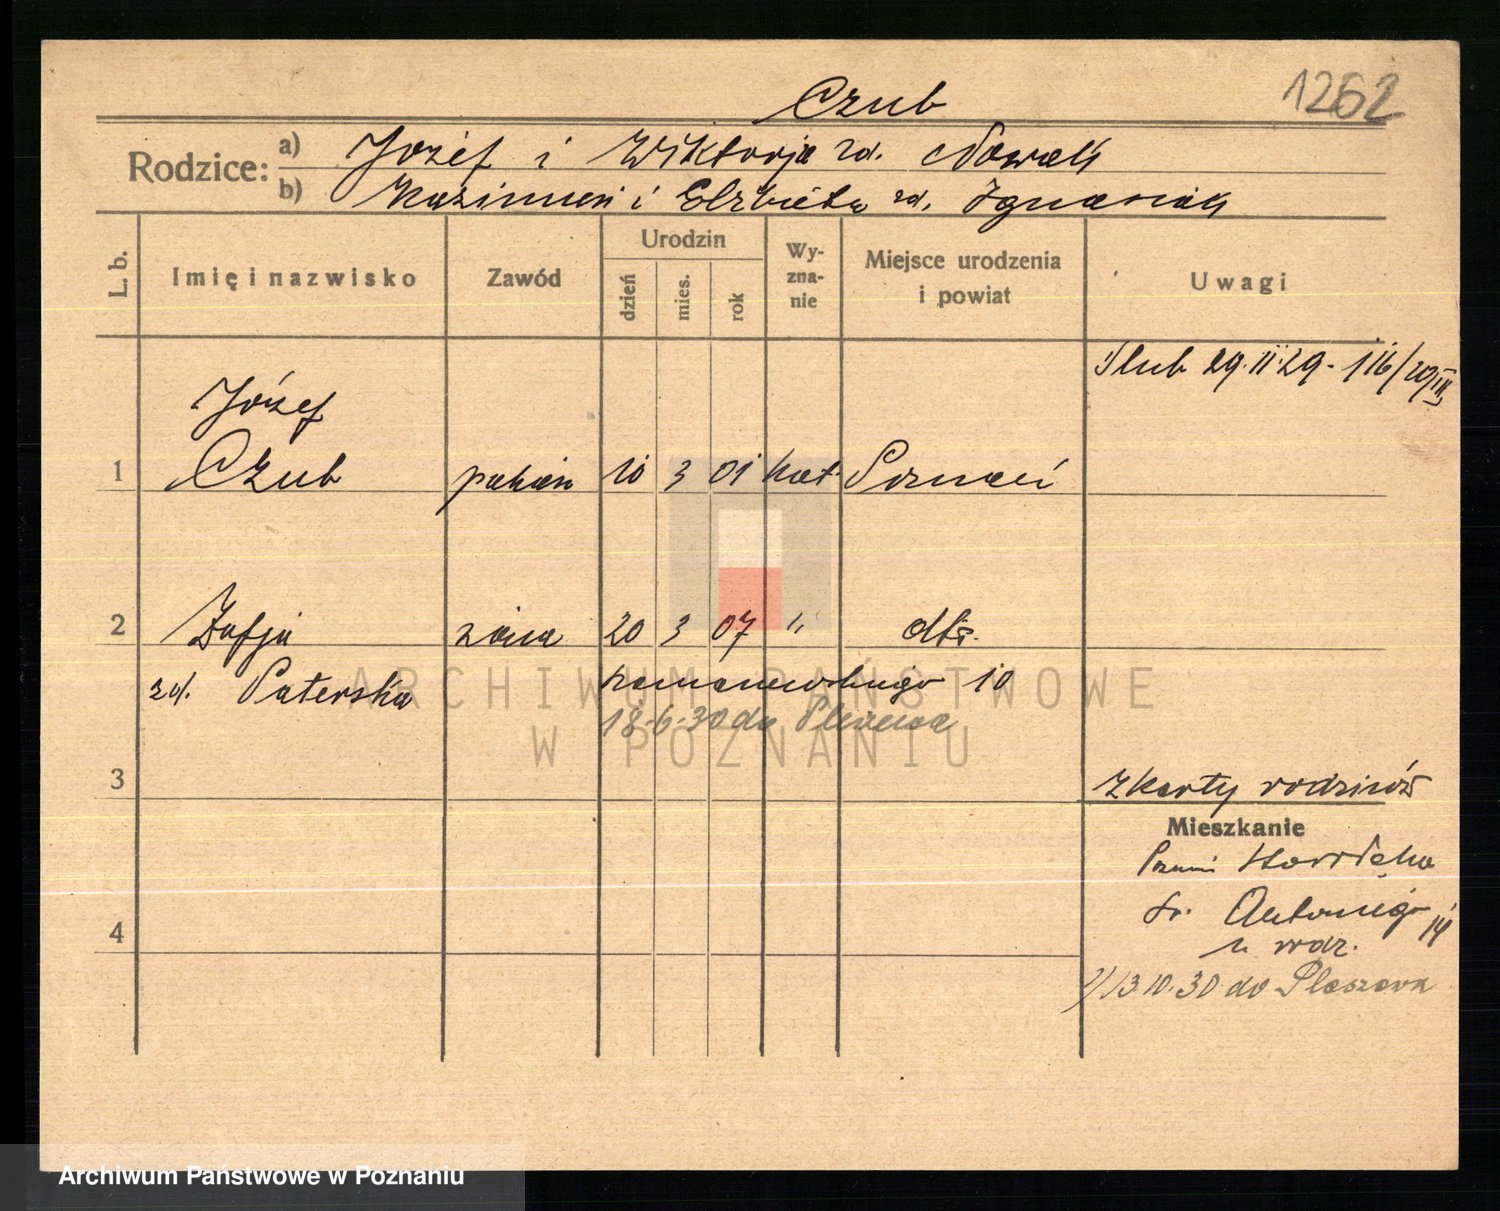 Czub
1262
Rodzice:
a) Józef i Wiktorja zd. Nowak
b) Kazimierz i Elżbieta zd. Ignasiak
L. b.
Imię i nazwisko
Zawód
Urodzin
dzień
mies.
rok
Wy-
zna-
nie
Miejsce urodzenia
i powiat
Uwagi
Ślub 29.II.29 - 116/29/III
Józef
1 Czub 10 3 01 kat. Poznań
2 Zofja żona 20 3 07 " dto.
zd. Paterska 10
18-6-30 do
ARCHIWUM PAŃSTWOWE
W POZNANIU
3
z karty rodziców
Mieszkanie
św. Antoniego 14
u rodz.
4
13.10.30 do Pleszewa
Archiwum Państwowe w Poznaniu